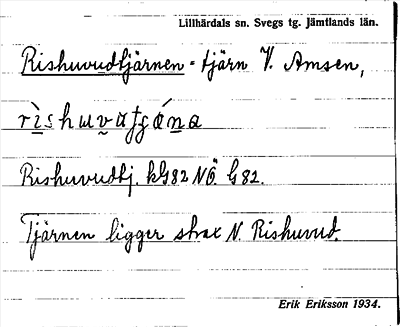 Lillhärdals sn. Svegs tg. Jämtlands län.
Rishuvudtjärnen - tjärn V. Amsen,
Rishuvudtj. kG82 NÖ. G82.
Tjärnen ligger strax N. Rishuvud.
Erik Eriksson 1934.